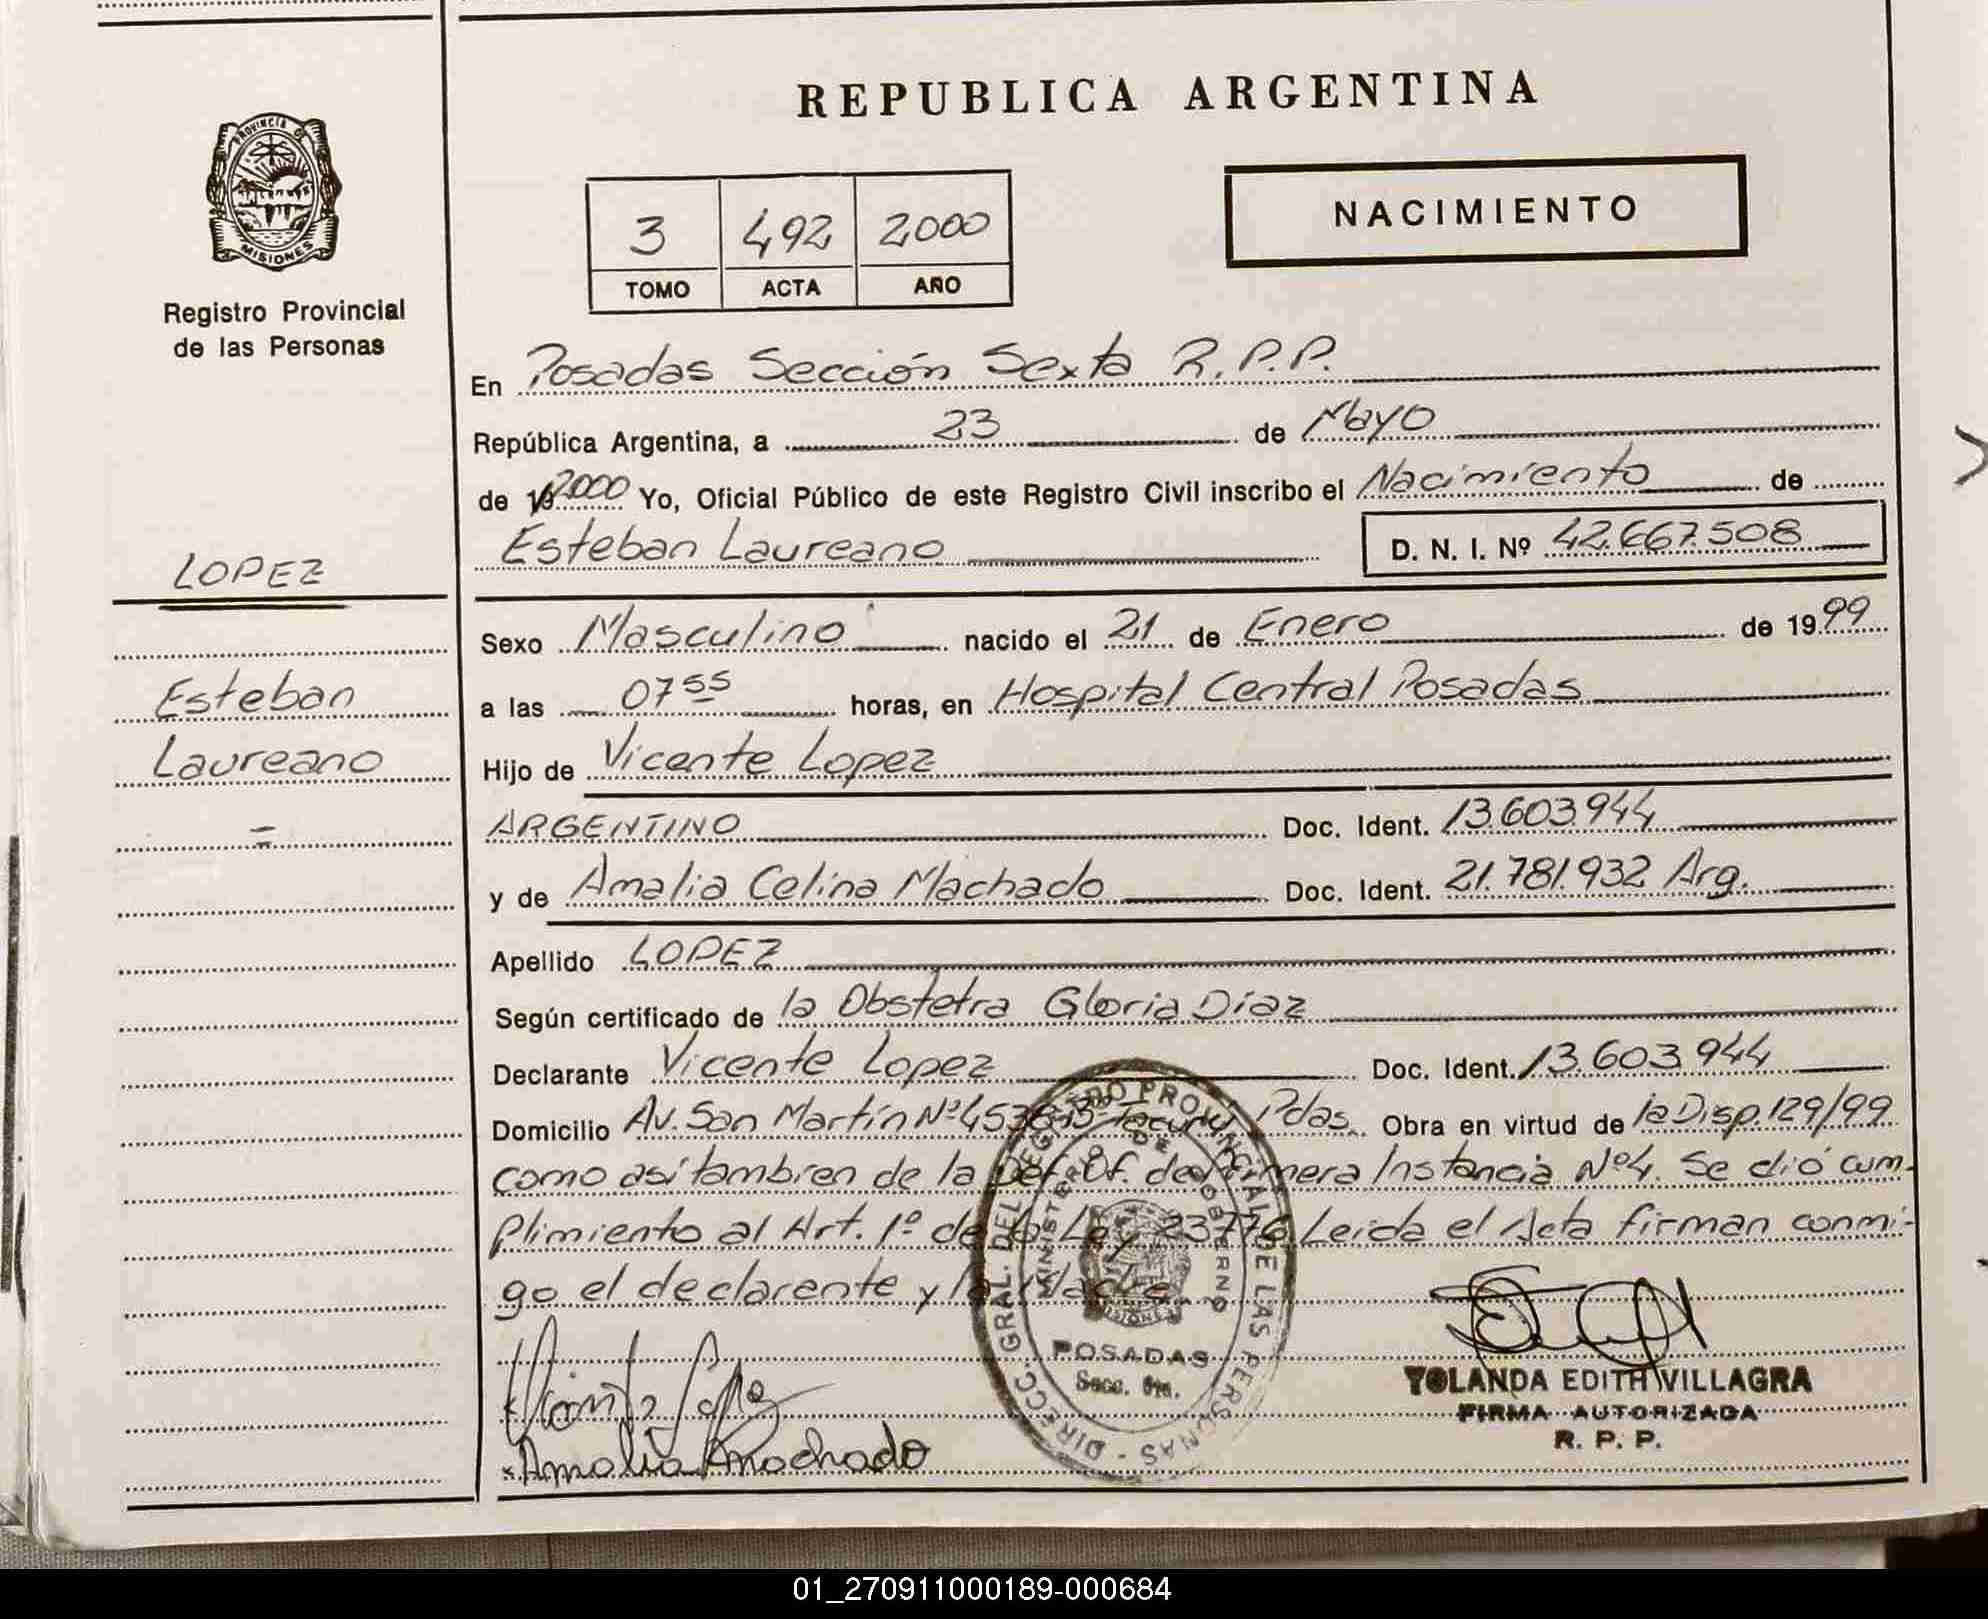 REPUBLICA ARGENTINA
PROVINCIA DE
MISIONES
Registro Provincial
de las Personas
3 492 2000
TOMO ACTA AÑO
NACIMIENTO
En Posadas Sección Sexta R.P.P.
República Argentina, a 23 de Mayo
de 19 2000 Yo, Oficial Público de este Registro Civil inscribo el Nacimiento de
Esteban Laureano D. N. I. Nº 42.667.508
LOPEZ
Esteban
Laureano
Sexo Masculino nacido el 21 de Enero de 1999
a las 07 55 horas, en Hospital Central Posadas
Hijo de Vicente Lopez
ARGENTINO Doc. Ident. 13.603.944
y de Amalia Celina Machado Doc. Ident. 21.781.932 Arg.
Apellido LOPEZ
Según certificado de la Obstetra Gloria Díaz
Declarante Vicente Lopez Doc. Ident. 13.603.944
Domicilio Av. San Martín Nº 4538 Bº Tacurú Pdas. Obra en virtud de la Disp. 129/99
como así tambien de la Def. Of. de Primera Instancia Nº4. Se dió cum-
plimiento al Art. 1º de la Ley 23776 Leida el Acta firman conmi-
go el declarente y la Madre.
Vicente Lopez
Amalia Machado
DIRECC. GRAL. DEL REGISTRO PROVINCIAL DE LAS PERSONAS
MINISTERIO DE GOBIERNO
MISIONES
POSADAS
Secc. 6ta.
YOLANDA EDITH VILLAGRA
FIRMA AUTORIZADA
R. P. P.
01_270911000189-000684